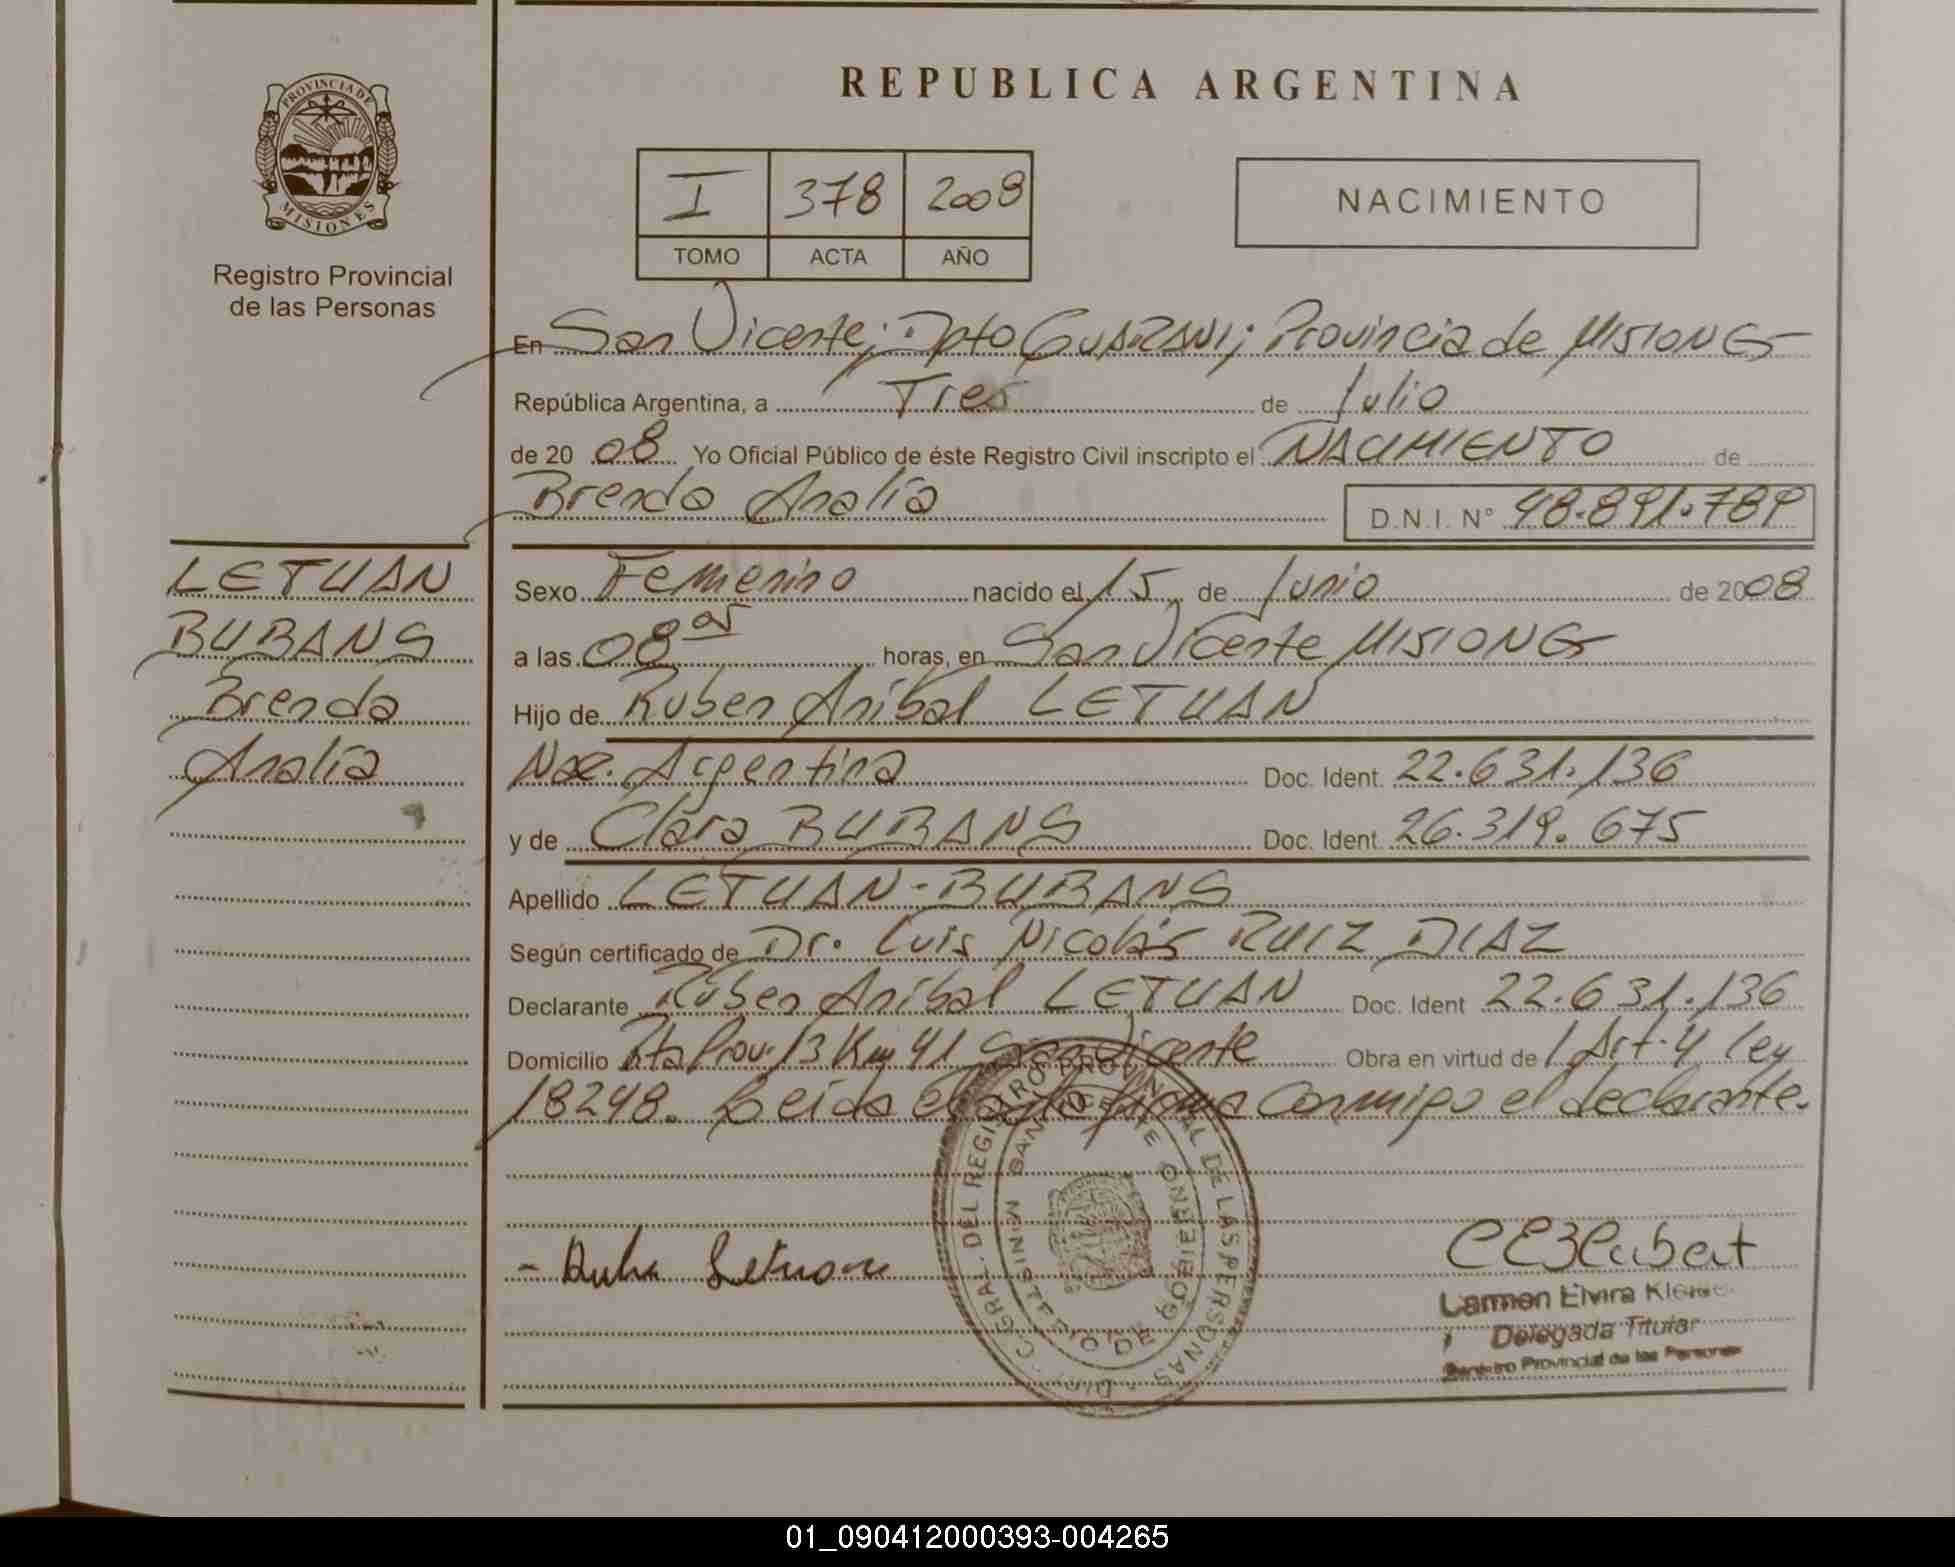 PROVINCIA DE
MISIONES
Registro Provincial
de las Personas
REPUBLICA ARGENTINA
I 378 2008
TOMO ACTA AÑO
NACIMIENTO
En San Vicente; Dpto GUARANI; Provincia de MISIONES
República Argentina, a Tres de Julio
de 20 08 Yo Oficial Público de éste Registro Civil inscripto el NACIMIENTO de
Brenda Analía D.N.I. N° 48.891.789
LETUAN
BUBANS
Brenda
Analía
Sexo Femenino nacido el 15 de Junio de 2008
a las 08 05 horas, en San Vicente MISIONES
Hijo de Ruben Aníbal LETUAN
Nac. Argentina Doc. Ident. 22.631.136
y de Clara BUBANS Doc. Ident. 26.319.675
Apellido LETUAN-BUBANS
Según certificado de Dr. Luis Nicolás RUIZ DIAZ
Declarante Ruben Aníbal LETUAN Doc. Ident 22.631.136
Domicilio Rta Prov. 13 Km 41 San Vicente Obra en virtud de Art. 4 ley
18248. Leída el acta firma conmigo el declarante.
GRAL. DEL REGISTRO PROVINCIAL DE LAS PERSONAS
MINISTERIO DE GOBIERNO
SAN VICENTE
Carmen Elvira
Delegada Titular
Registro Provincial de las Personas
01_090412000393-004265